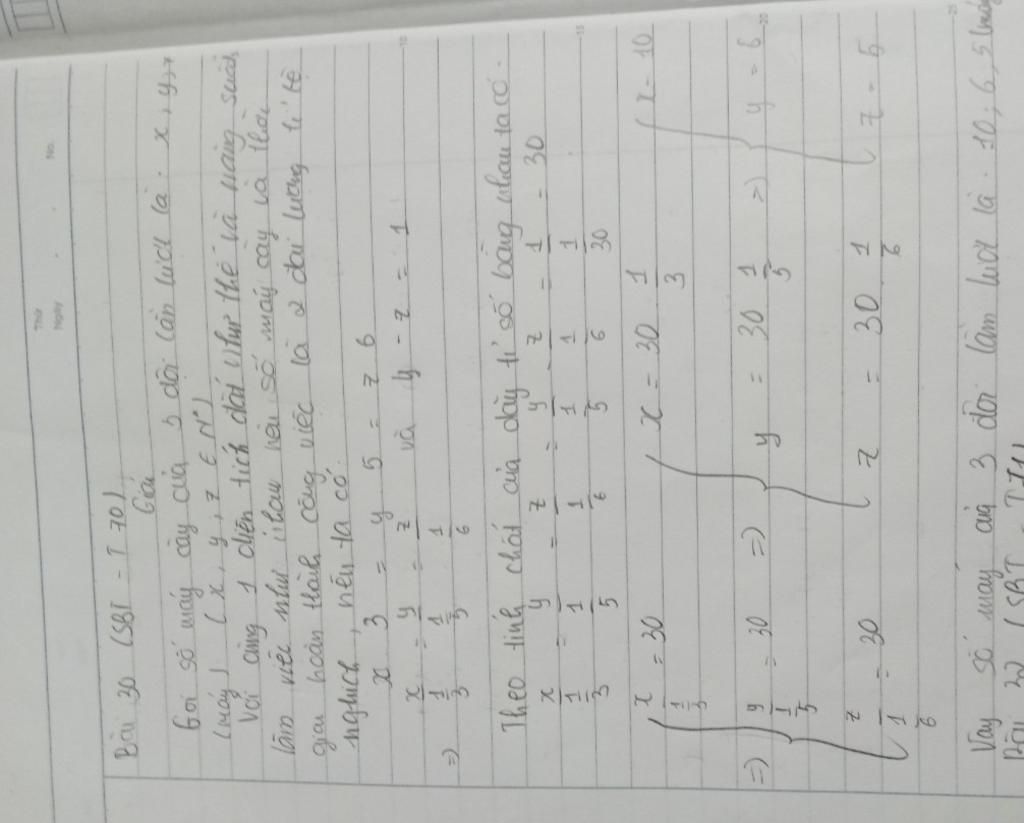 Thứ
Ngày
No.
Bài 30 (SBT - T 70)
Giải
Gọi số máy cày của 3 đội lần lượt là : x, y, z
(máy) (x, y, z ∈ N*)
Với cùng 1 diện tích đất như thế và năng suất
làm việc như nhau nên số máy cày và thời
gian hoàn thành công việc là 2 đại lượng tỉ lệ
nghịch, nên ta có
x 3 = y 5 = z 6
=> x/(1/3) = y/(1/5) = z/(1/6) và y - z = 1
Theo tính chất của dãy tỉ số bằng nhau ta có.
x/(1/3) = y/(1/5) = z/(1/6) = (y - z)/(1/5 - 1/6) = 1/(1/30) = 30
=> { x/(1/3) = 30 { x = 30 1/3 { x = 10
y/(1/5) = 30 => y = 30 1/5 => y = 6
z/(1/6) = 30 z = 30 1/6 z = 5
Vậy số máy của 3 đội lần lượt là : 10 ; 6 ; 5 (máy
Bài 32 (SBT - T71)
10
15
20
25